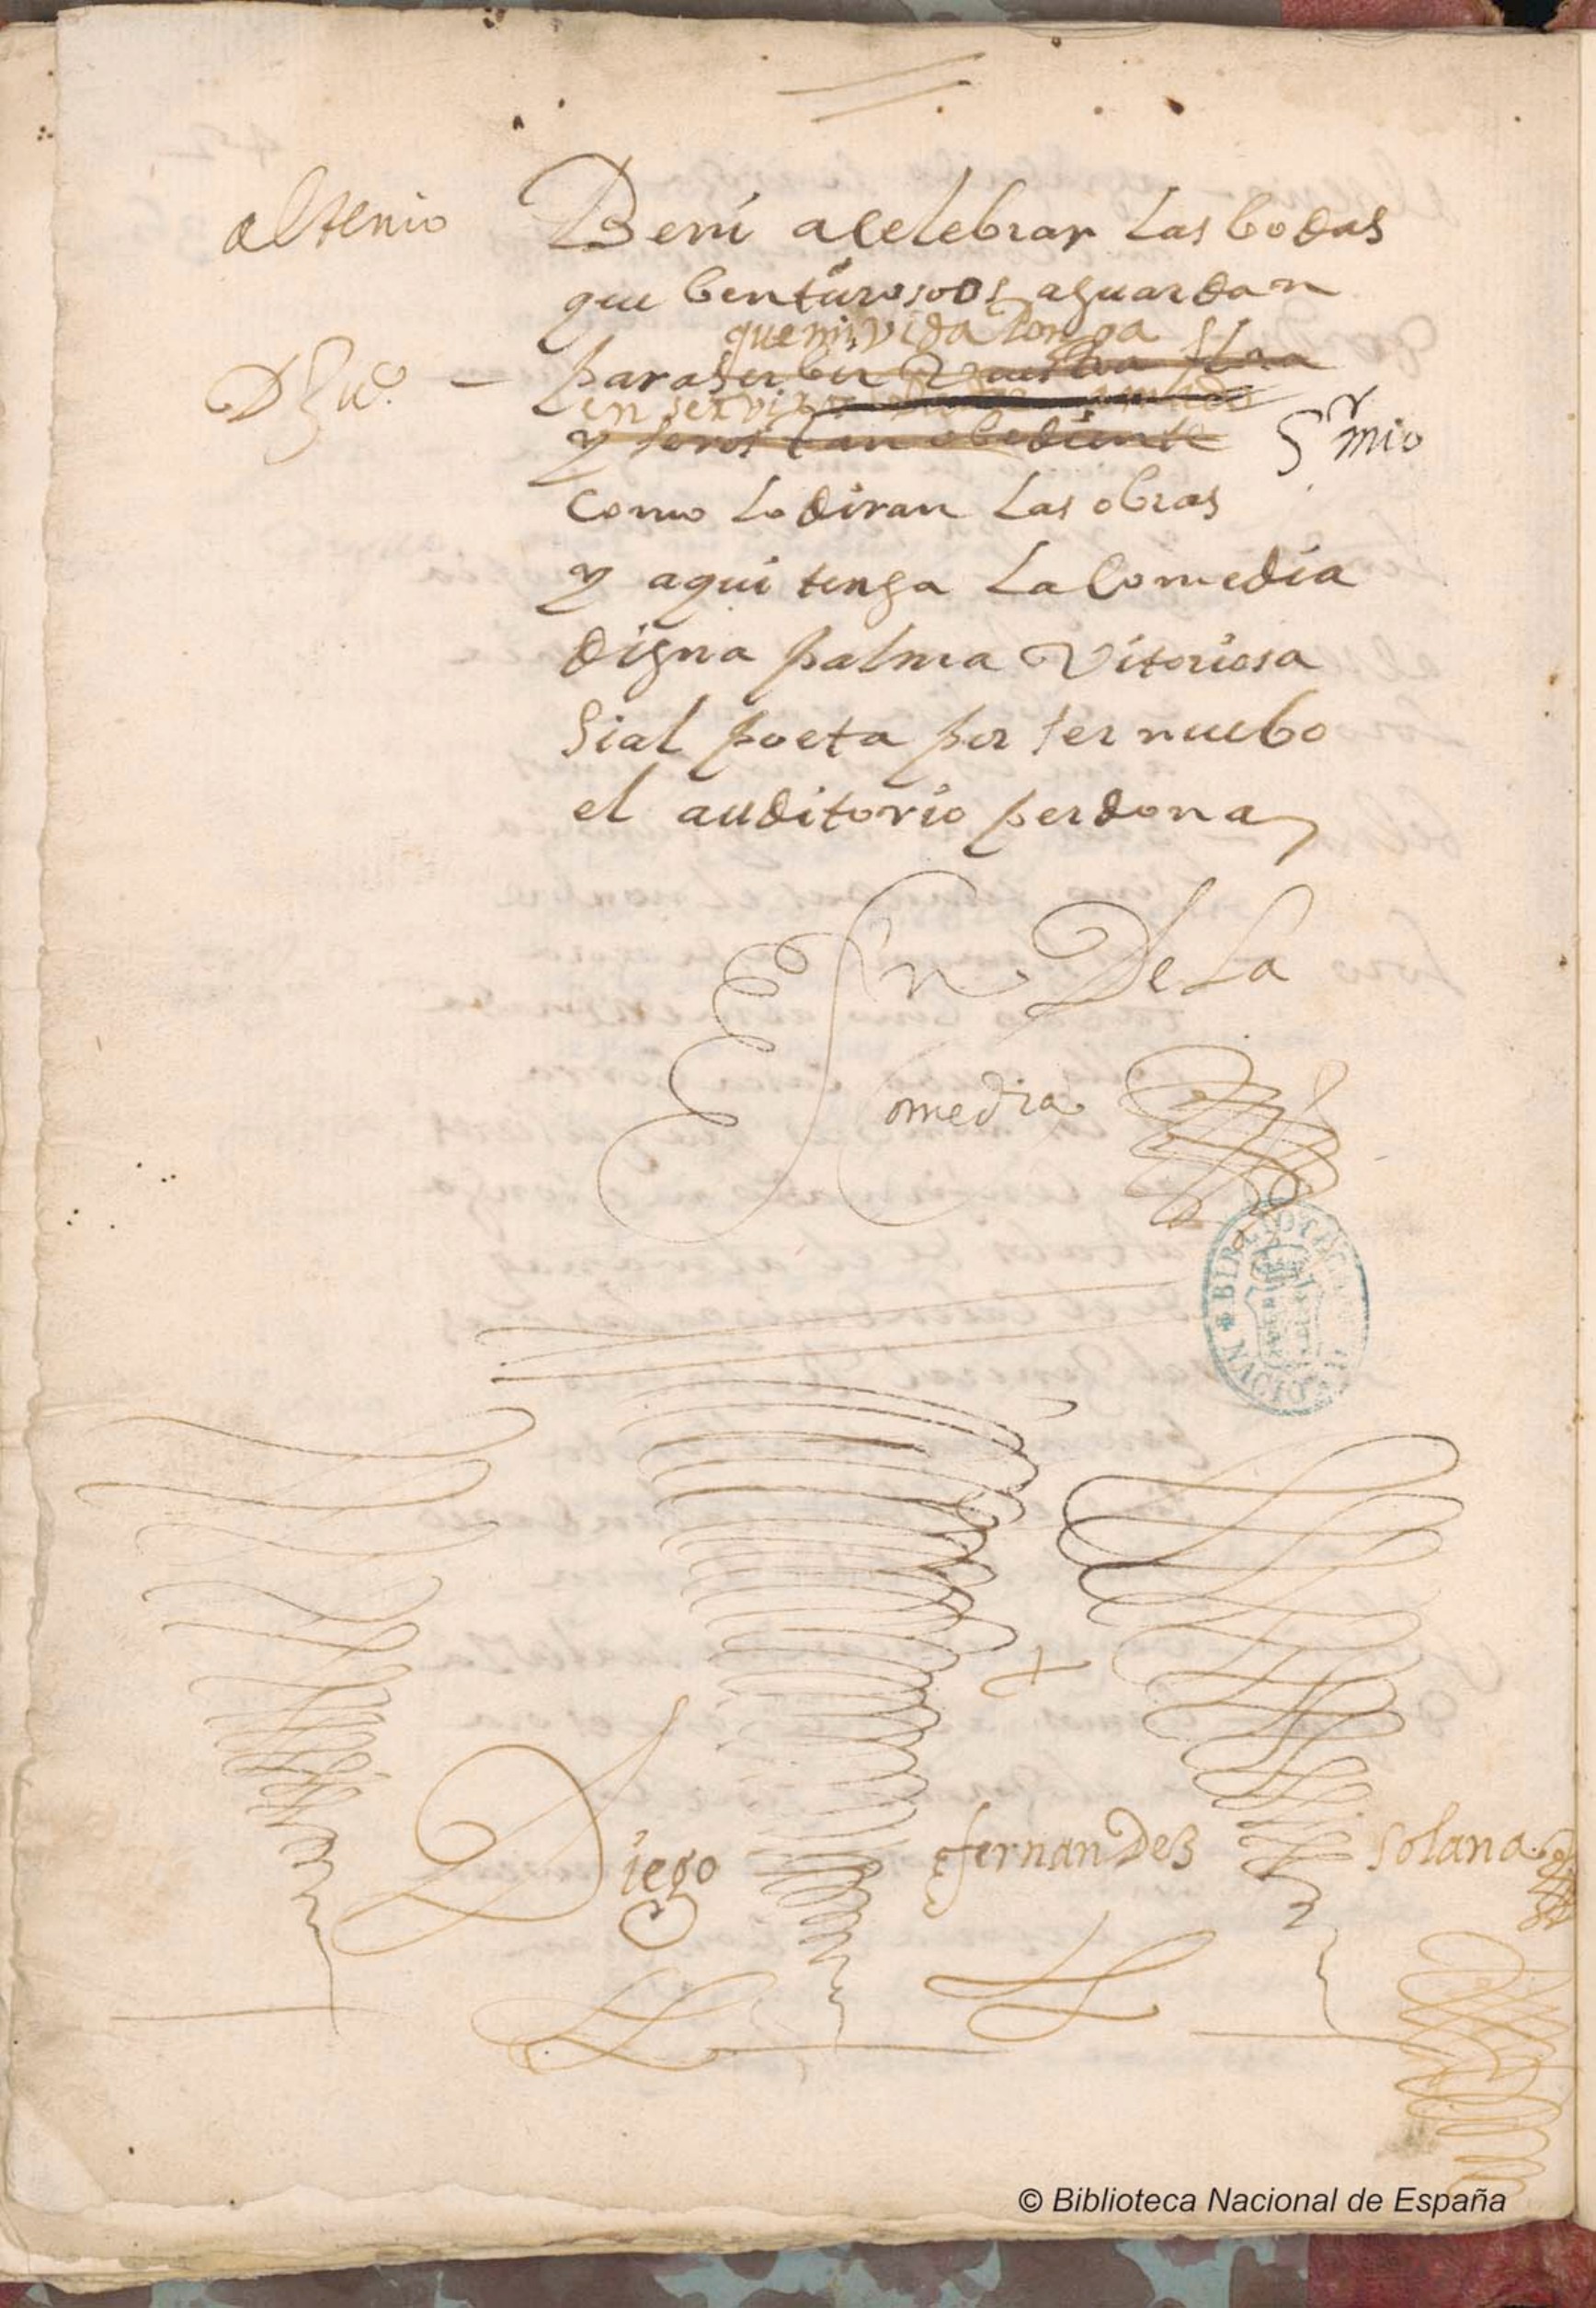 altenio Beni acelebrar las bodas
que benturosoos aguardan
que mi vida ponga
D Ju.º – para serbir vuestra
en servi
y seros tan obediente Sr mio
como lo diran las obras
y aqui tenga la comedia
digna palma vitoriosa
si al poeta por ser nuebo
el auditorio perdona
Fin De la
Comedia
BIBLIOTECA NACIONAL
Diego fernandes solana
© Biblioteca Nacional de España